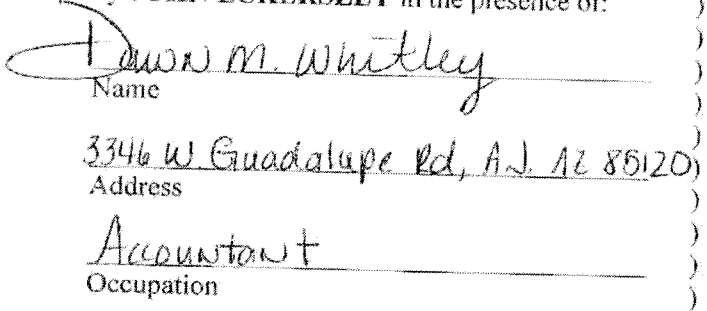 ECKERSLEY in the presence of:
Dawn M. Whitley
Name
3346 W. Guadalupe Rd, A.J. AZ 85120)
Address
Accountant
Occupation
)
)
)
)
)
)
)
)
)